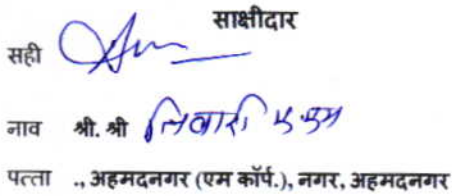 साक्षीदार
सही
नाव श्री. श्री तिवारी ए.एम
पत्ता ., अहमदनगर (एम कॉर्प.), नगर, अहमदनगर